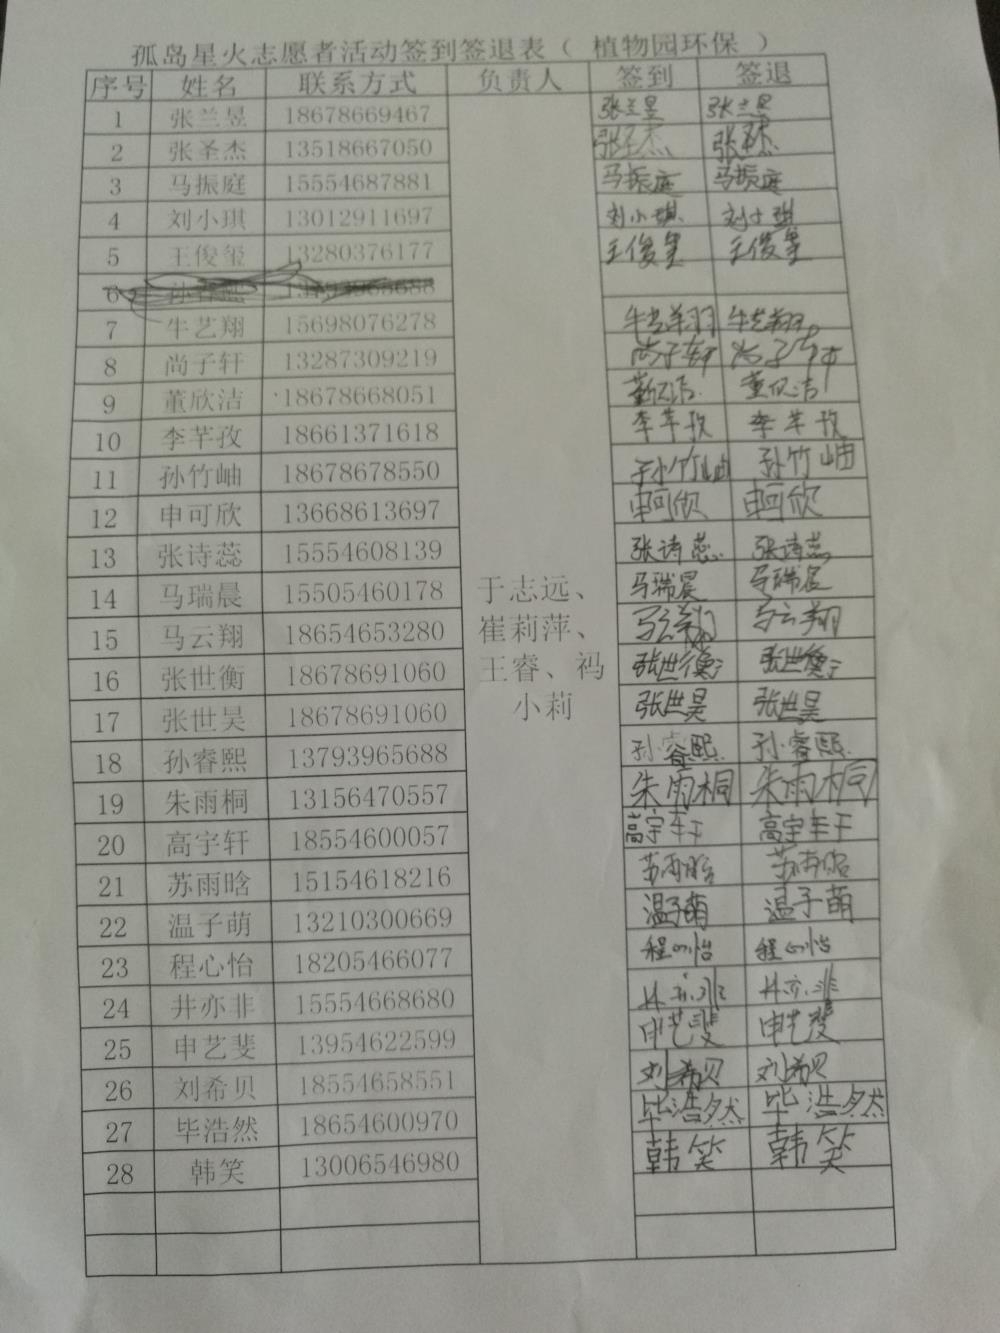 孤岛星火志愿者活动签到签退表（ 植物园环保 ）
序号 姓名 联系方式 负责人 签到 签退
1 张兰昱 18678669467 张兰昱 张兰昱
2 张圣杰 13518667050 张圣杰 张圣杰
3 马振庭 15554687881 马振庭 马振庭
4 刘小琪 13012911697 刘小琪 刘小琪
5 王俊玺 13280376177 王俊玺 王俊玺
6 孙睿熙 13793965688
7 牛艺翔 15698076278 牛艺翔 牛艺翔
8 尚子轩 13287309219 尚子轩 尚子轩
9 董欣洁 18678668051 董欣洁 董欣洁
10 李芊孜 18661371618 李芊孜 李芊孜
11 孙竹岫 18678678550 孙竹岫 孙竹岫
12 申可欣 13668613697 申可欣 申可欣
13 张诗蕊 15554608139 张诗蕊 张诗蕊
14 马瑞晨 15505460178 马瑞晨 马瑞晨
于志远、
15 马云翔 18654653280 马云翔 马云翔
崔莉萍、
16 张世衡 18678691060 张世衡 张世衡
王睿、祃
17 张世昊 18678691060 张世昊 张世昊
小莉
18 孙睿熙 13793965688 孙睿熙 孙睿熙
19 朱雨桐 13156470557 朱雨桐 朱雨桐
20 高宇轩 18554600057 高宇轩 高宇轩
21 苏雨晗 15154618216 苏雨晗 苏雨晗
22 温子萌 13210300669 温子萌 温子萌
23 程心怡 18205466077 程心怡 程心怡
24 井亦非 15554668680 井亦非 井亦非
25 申艺斐 13954622599 申艺斐 申艺斐
26 刘希贝 18554658551 刘希贝 刘希贝
27 毕浩然 18654600970 毕浩然 毕浩然
28 韩笑 13006546980 韩笑 韩笑